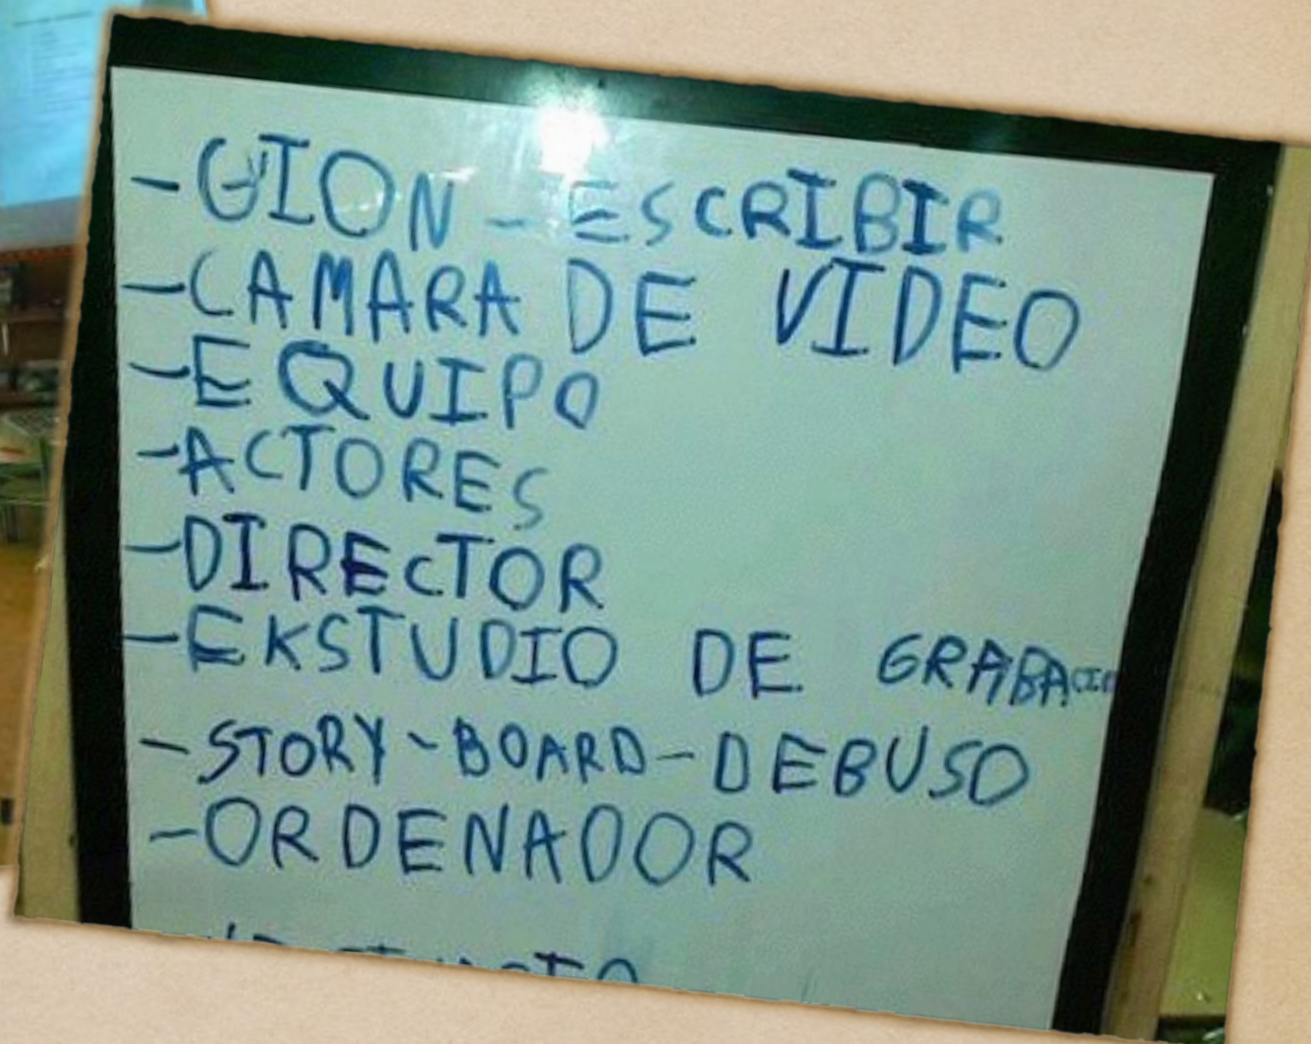 - GION - ESCRIBIR
- CAMARA DE VIDEO
- EQUIPO
- ACTORES
- DIRECTOR
- EKSTUDIO DE GRABACIO
- STORY - BOARD - DEBUSO
- ORDENADOR